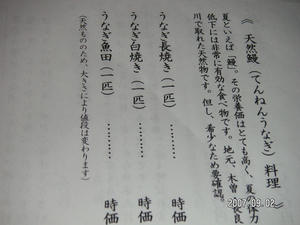 《 天然鰻（てんねんうなぎ）料理 》
夏といえば「鰻」。その栄養価はとても高く、夏の体力
低下には非常に有効な食べ物です。地元、木曽・長良
川で取れた天然物です。但し、希少なため要確認。
うなぎ長焼き（一匹）………　時価
うなぎ白焼き（一匹）………　時価
うなぎ魚田（一匹）………　時価
（天然もののため、大きさにより値段は変わります）
2007.09.02